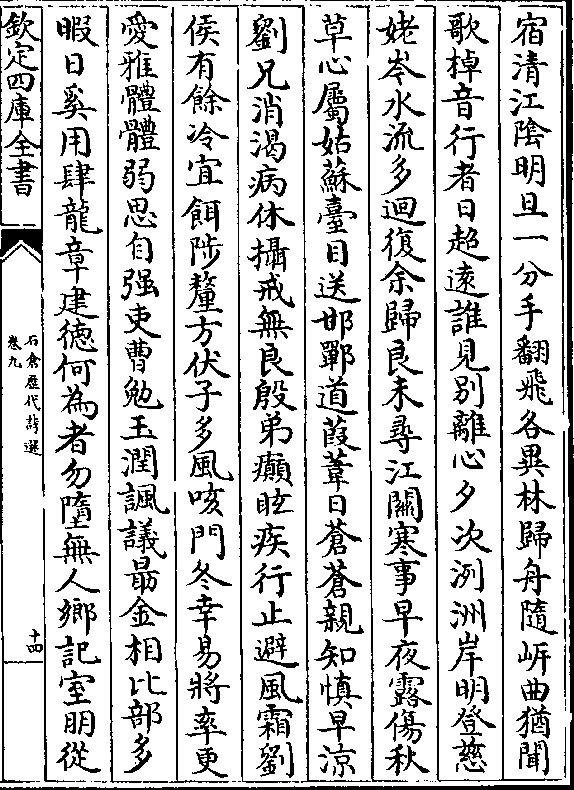 宿清江陰明旦一分手翻飛各異林歸舟隨岍曲猶聞
歌棹音行者日超遠誰見別離心夕次洌洲岸明登慈
姥岑水流多迴復余歸良未尋江關寒事早夜露傷秋
草心屬姑蘇臺目送邯鄲道葭葦日蒼蒼親知慎早涼
劉兄消渴病休攝戒無良殷弟癲眩疾行止避風霜劉
侯有餘冷宜餌陟釐方伏子多風咳門冬幸易將率更
愛雅體體弱思自强吏曹勉玉潤諷議最金相比部多
暇日奚用肆龍章建德何為者勿墮無人鄉記室朋從
欽定四庫全書
石倉歷代詩選
卷九
十四